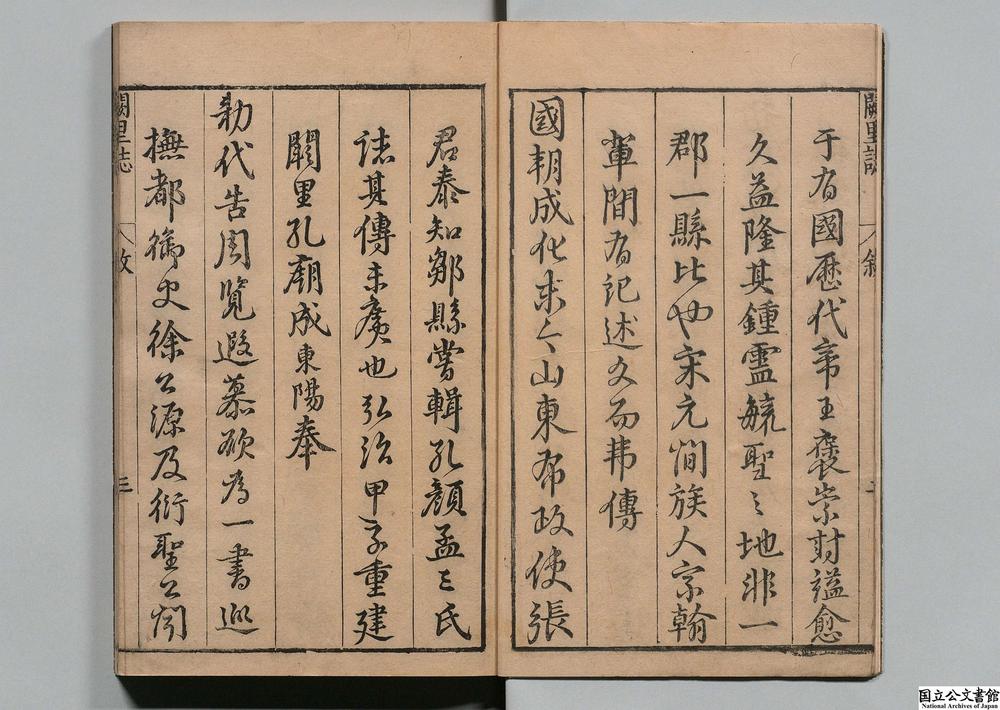 闕里誌
叙
于有國歷代帝王褒崇封謚愈
久益隆其鍾靈毓聖之地非一
郡一縣比也宋元間族人宗翰
軰間有記述文而弗傳
國朝成化末今山東布政使張
君泰知鄒縣嘗輯孔顏孟三氏
誌其傳未廣也弘治甲子重建
闕里孔廟成東陽奉
勑代告周覽遐慕欲為一書巡
撫都御史徐公源及衍聖公聞
闕里誌
叙
三
国立公文書館
National Archives of Japan